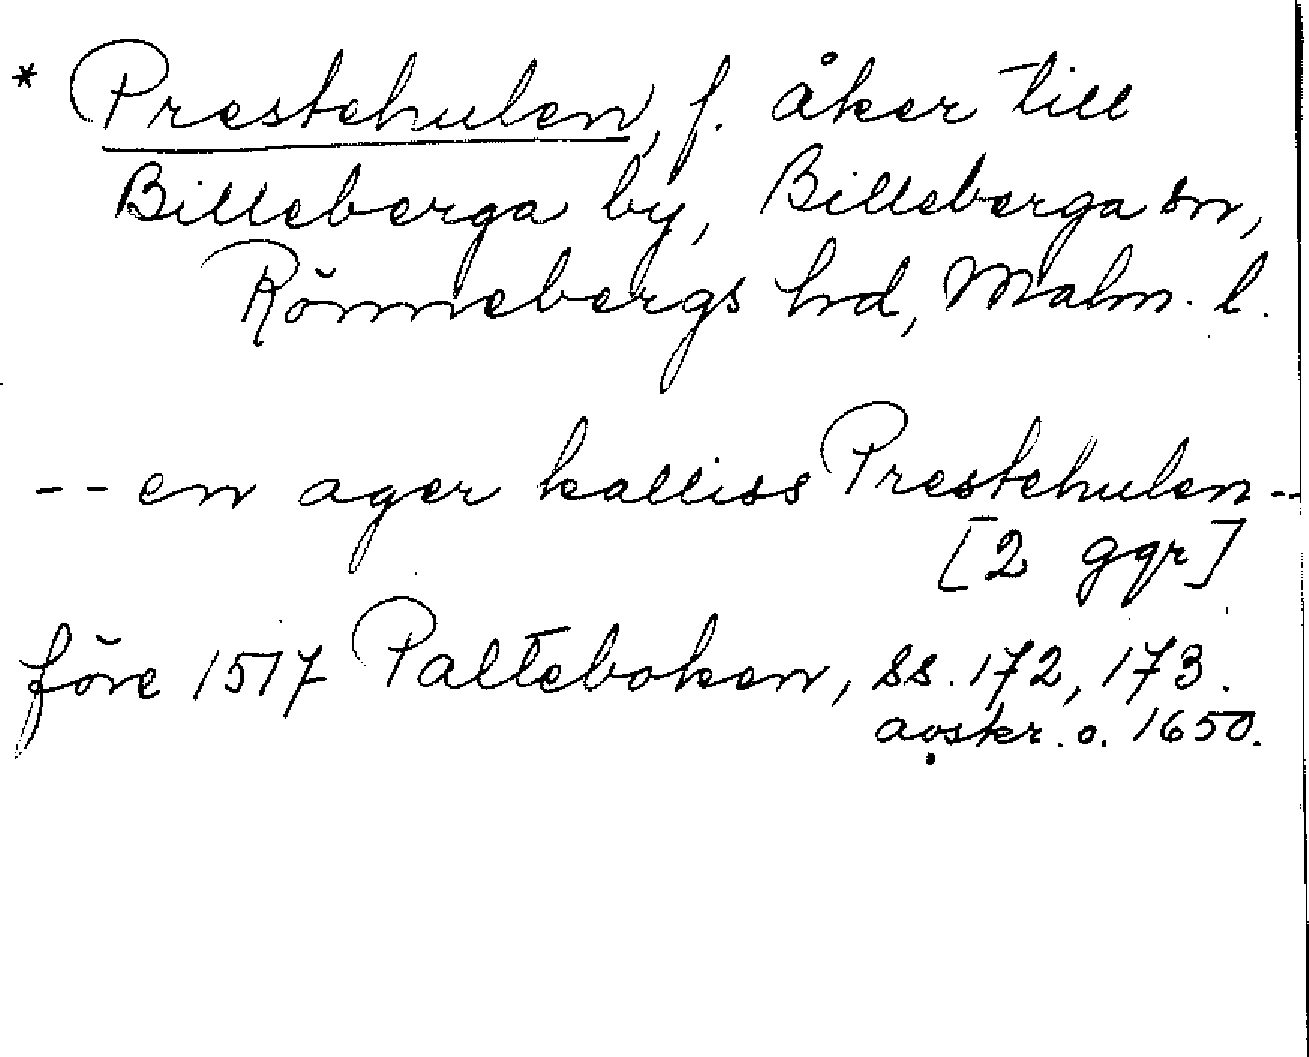 * Prestehulen, f. åker till
Billeberga by, Billeberga sn,
Rönnebergs hrd, Malm. l.
-- en ager kalliss Prestehulen --
[2 ggr]
före 1517 Palteboken, ss. 172, 173.
avskr. o. 1650.